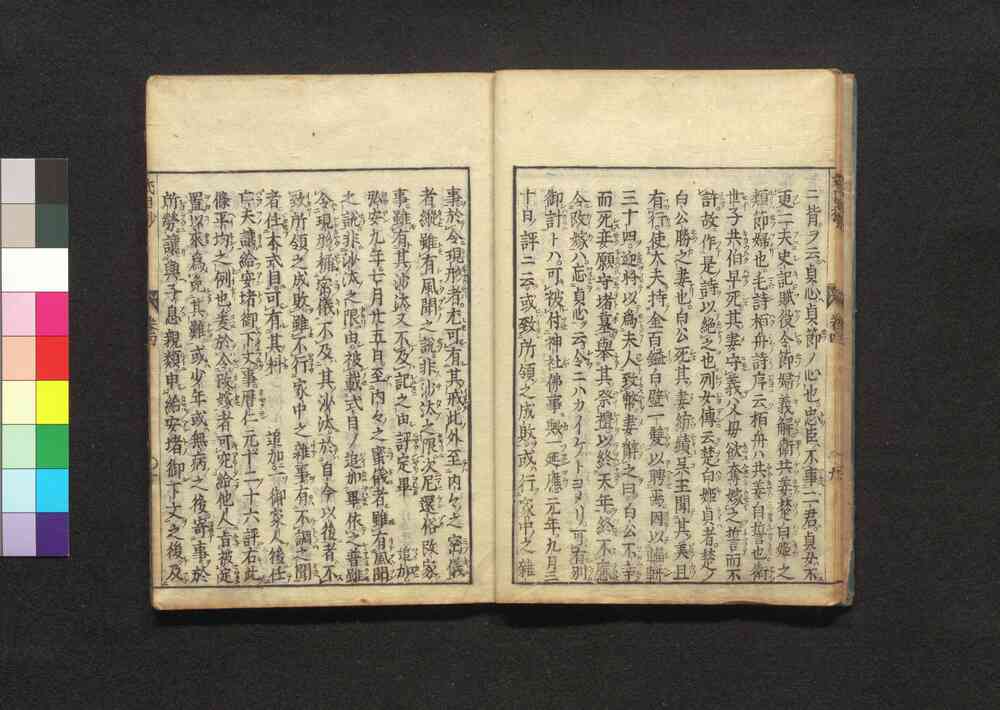 ニ背ヲ云貞心貞節ノ心也忠臣不事二君貞女不
更二夫史記賦役令節婦義解衛共姜楚白姫之
類節婦也毛詩栢舟詩序云栢舟ハ共姜自誓也衛
世子共伯早死其妻守義父母欲奪嫁之誓而不
許故作是詩以絶之也列女傳云楚白姫貞者楚ノ
白公勝之妻也白公死其妻紡績呉王聞其美且
有行使大夫持金百鎰白璧一雙以聘焉因以輜軿
三十四迎將以為夫人致幣妻辭之曰白公不幸
而死妾願守墳墓擧其祭禮以終天年終不應
令改嫁ハ忘貞心ヲ云令ニハカイケントヨメリ可有別
御計トハ可被付神社佛事歟延應元年九月三
十日評ニ云或致所領之成敗或行家中之雜
事於令現形者尤可有其戒此外至内々之密儀
者縱雖有風聞之説非沙汰之限次尼還俗改嫁
事雖有其沙汰又不及記之由評定畢 追加
弘安九年七月廿五日至内々之蜜儀者雖有風聞
之説非沙汰之限由被載式目ノ追加畢依之普雖
令現形稱密儀不及其沙汰於自今以後者不
致所領之成敗雖不行家中之雜事有不調之聞
者任本式目可有其科 追加ニ御家人後任
亡夫讓給安堵御下文事暦仁元十二十六評右此
條平均之例也爰於令改嫁者可宛給他人旨被定
置以來為免其難或少年或無病之後寄事於
所勞讓與子息親類申給安堵御下文之後及